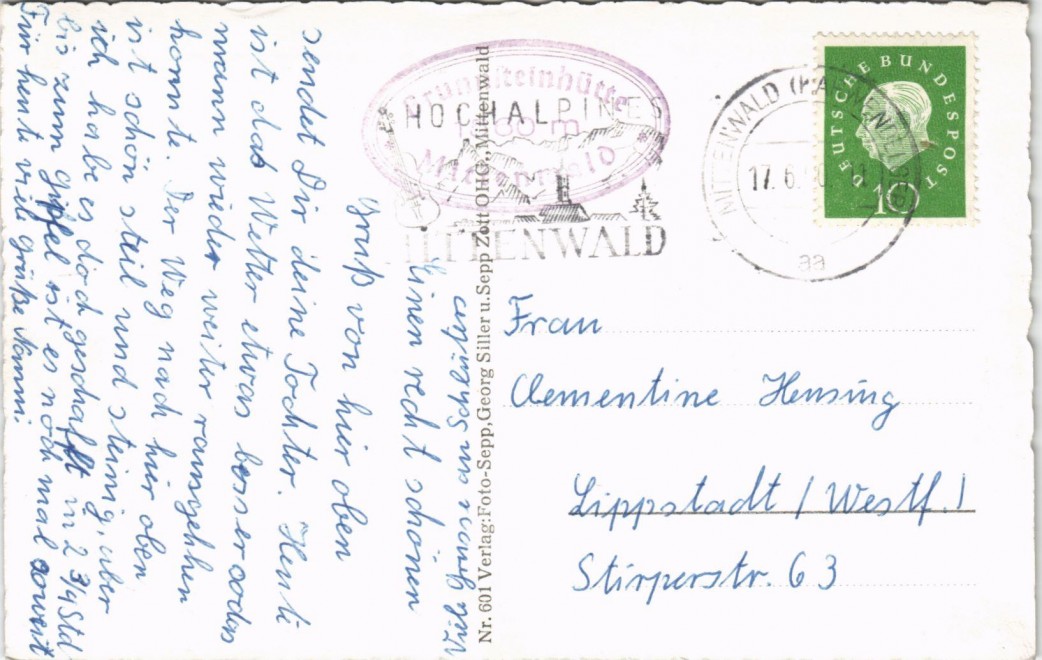 Einen recht schönen
Gruß von hier oben
sendet Dir deine Tochter. Heute
ist das Wetter etwas besser sodas
mann wieder weiter rausgehhen
konnte. Der Weg nach hier oben
ist schön steil und steinig, aber
ich habe es doch geschafft in 2 3/4 Std
bis zum gipfel ist es noch mal soweit
Für heute viele grüße Nanni.
HOCHALPINES
MITTENWALD
Brunnsteinhütte
1560 m
Mittenwald
MITTENWALD (KARWENDELGEB)
17.6.
aa
DEUTSCHE BUNDESPOST
10
Nr. 601 Verlag: Foto-Sepp, Georg Siller u. Sepp Zott OHG., Mittenwald
Frau
Clementine Hensing
Lippstadt / Westf. /
Stirperstr. 63